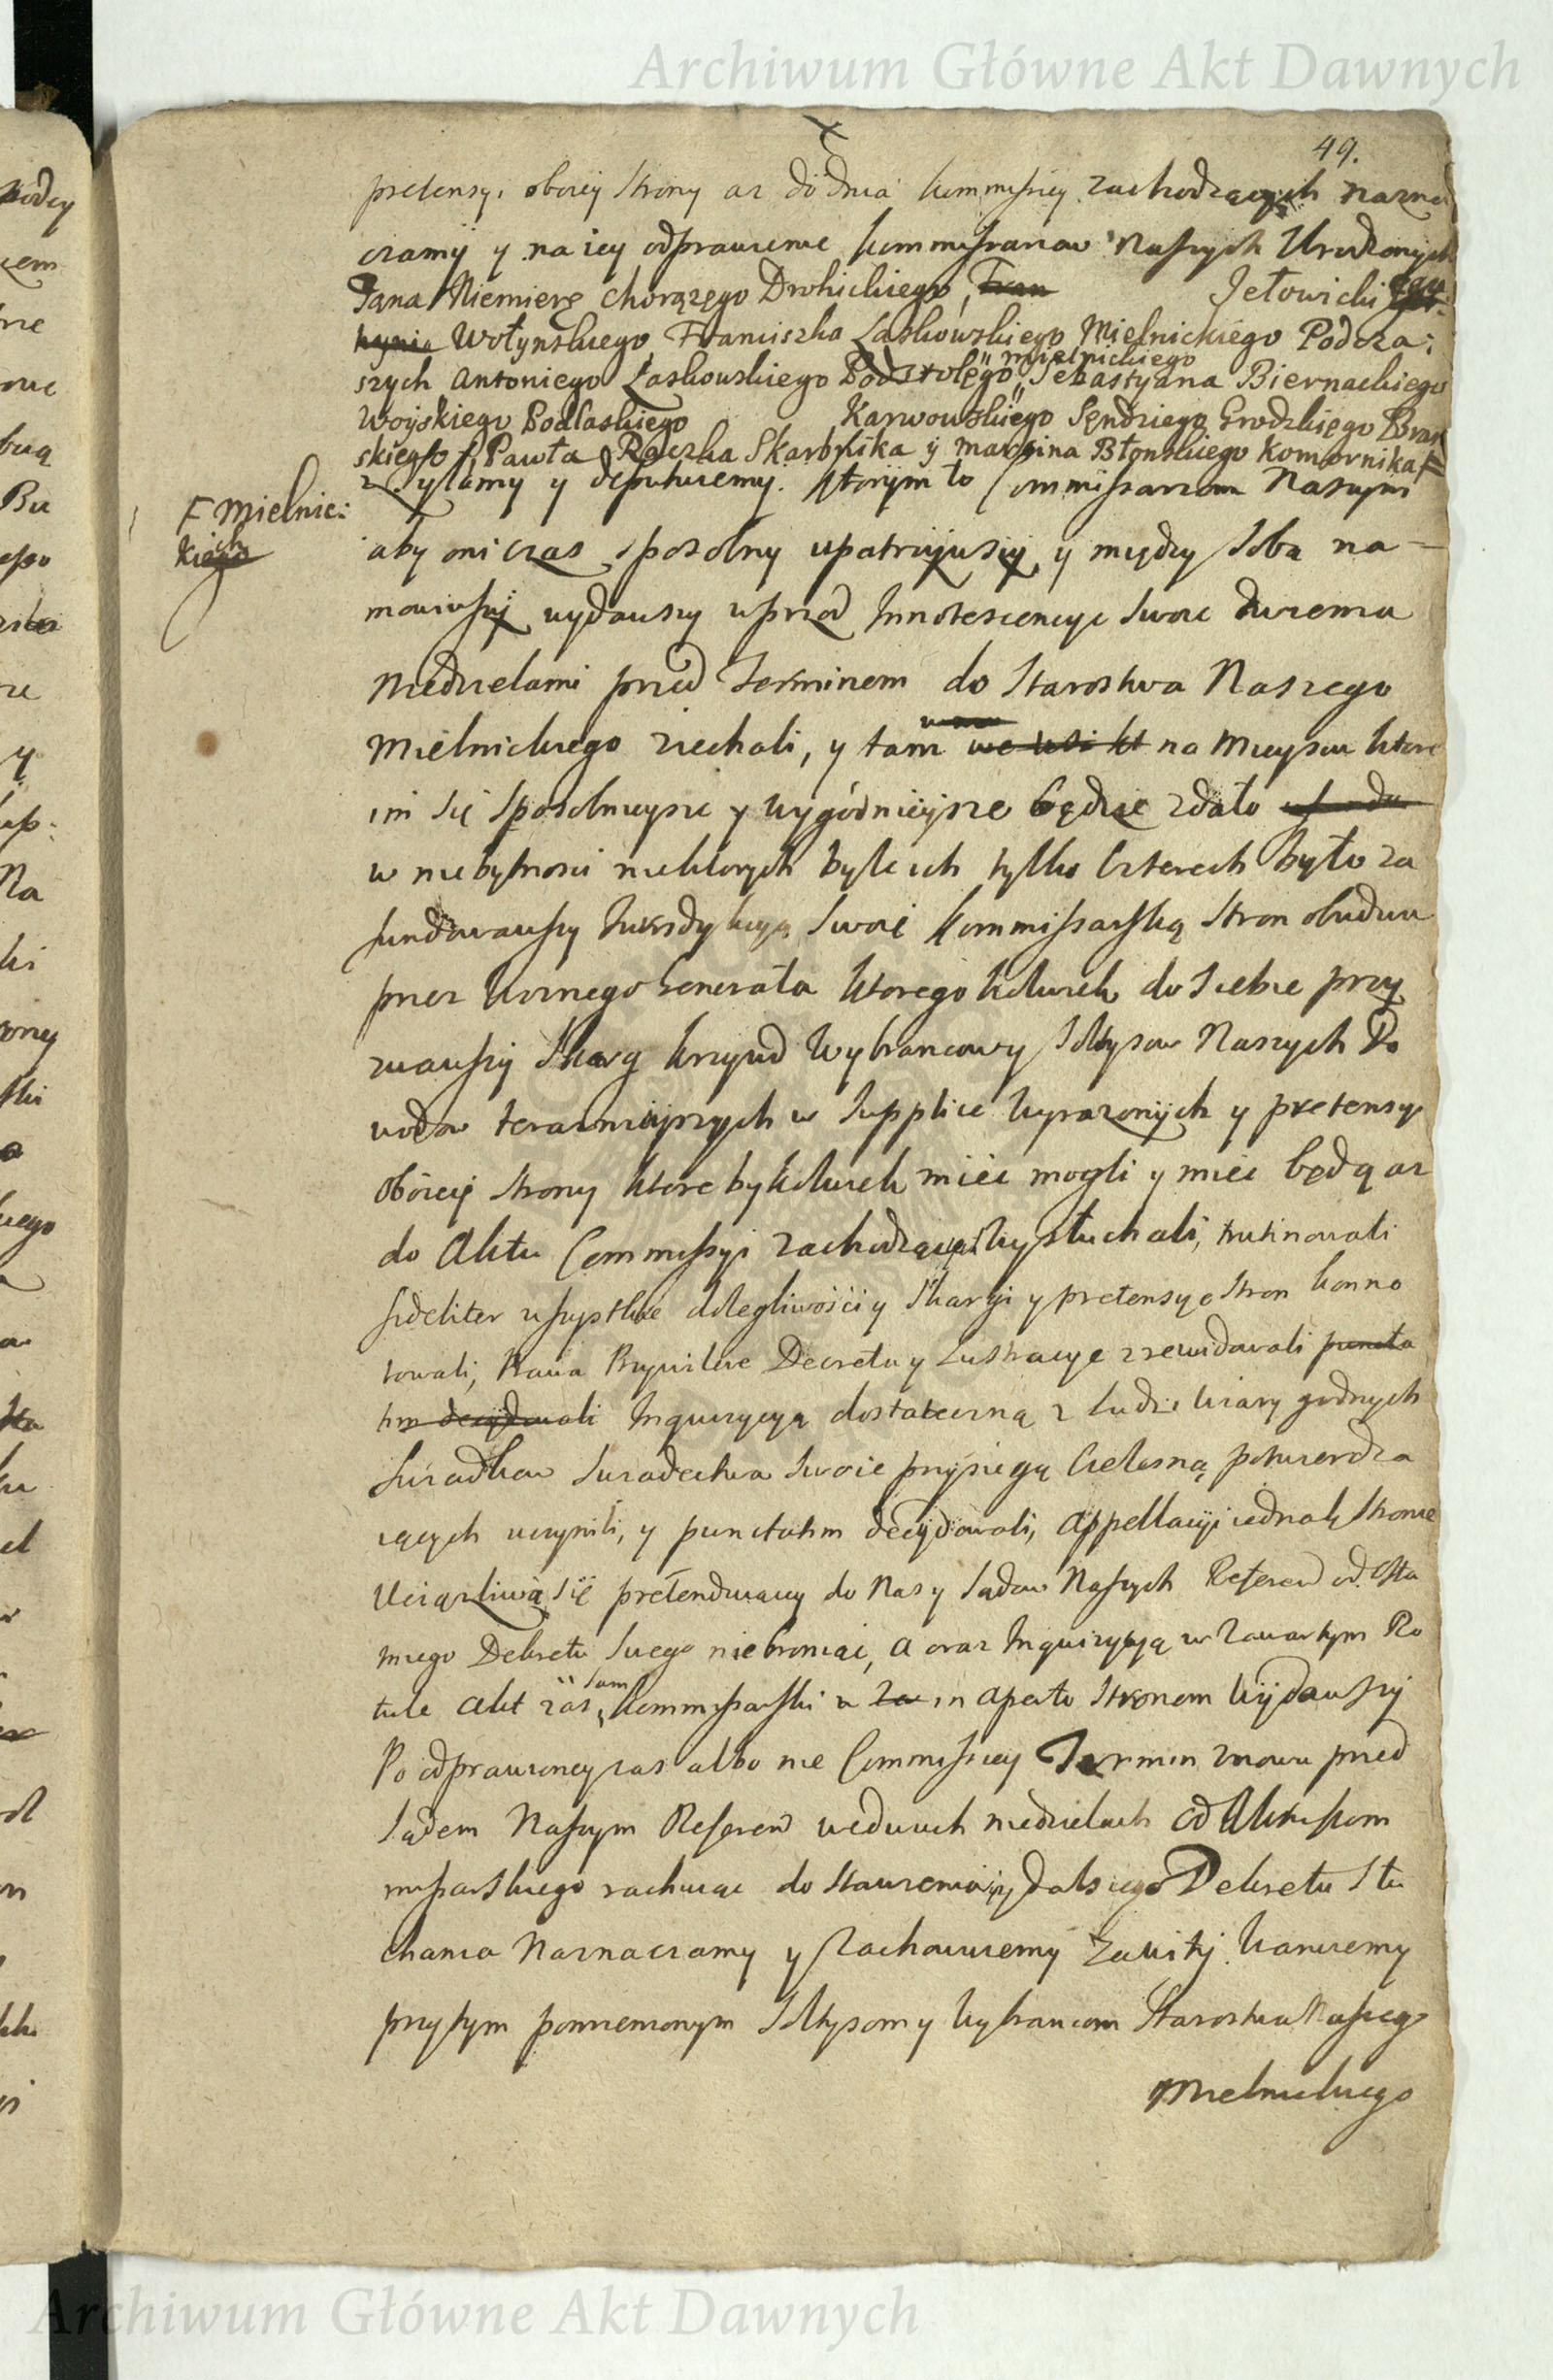 Archiwum Główne Akt Dawnych
49.
pretensyi oboiey strony az do dnia kommissiey zachodzących nazna
czamy y na iey odprawienie kommissarzow Naszych Urodzonych
Jana Niemierę Chorązego Drohickiego, Fran Jełowicki
Wołynskiego Franciszka Laskowskiego Mielnickiego Podcza:
mielnickiego
szych Antoniego Łaskowskiego Podstolego Sebastyana Biernackiego
Woyskiego Podlaskiego Karwowskiego Sędziego Grodzkiego Bran
skiego Pawła Raczka Skarbnika y marcina Błonskiego Komornika F
zsyłamy y deputuiemy. ktorym to Commissarzom Naszym
F Mielnic:
kich
aby oni czas sposobny upatrzywszy y między sobą na-
mowiwszy wydawszy wprzod Innotescencye swoie dwiema
Niedzielami przed Terminem do Starostwa Naszego
Mielnickiego ziechali, y tam na mieyscu ktore
im się sposobnieysze y wygodnieysze będzie zdało
w niebytnosci niektorych byle ich tylko czterech było za
fundowawszy Jurisdykcyą swoię kommissarską stron obudwu
przez Woznego Generała ktorego kolwiek do siebie przy
zwawszy skarg krzywd Wybrancow y Sołtysow Naszych Po
wodow teraznieyszych w supplice wyrazonych y pretensyi
oboiey strony ktore by kolwiek mieć mogli y mieć będą az
do Aktu Commissyi zachodzących wysłuchali, trutinowali
fideliter wszystkie dolegliwości y skargi y pretensye stron konno
towali, Prawa Przywileie Decreta y Lustracye zrewidowali puncta
tim decydowali Inquizycyą dostateczną z ludzi wiary godnych
swiadkow swiadectwa swoie przysięgą cielesną potwierdza
iących uczynili, y punctatim decydowali, Appellacyi iednak stronie
Uciązliwą się pretenduiącey do Nas y sądow Naszych Referen od osta
tniego Dekretu swego niebroniąc, a oraz Inquizycyą w zawartym Ro
tule Akt zas sam kommissarski in aperto stronom wydawszy
Po odprawioney zas albo nie Commissiey Termin znowu przed
sądem Naszym Referen wedwuch niedzielach od Aktu kom
missarskiego rachuiąc do stawienia się y dalszego Dekretu słu
chania Naznaczamy y zachowuiemy Zawity. Waruiemy
przytym pomienionym Sołtysom y Wybrancom Starostwa Naszego
Mielnickiego
Archiwum Główne Akt Dawnych